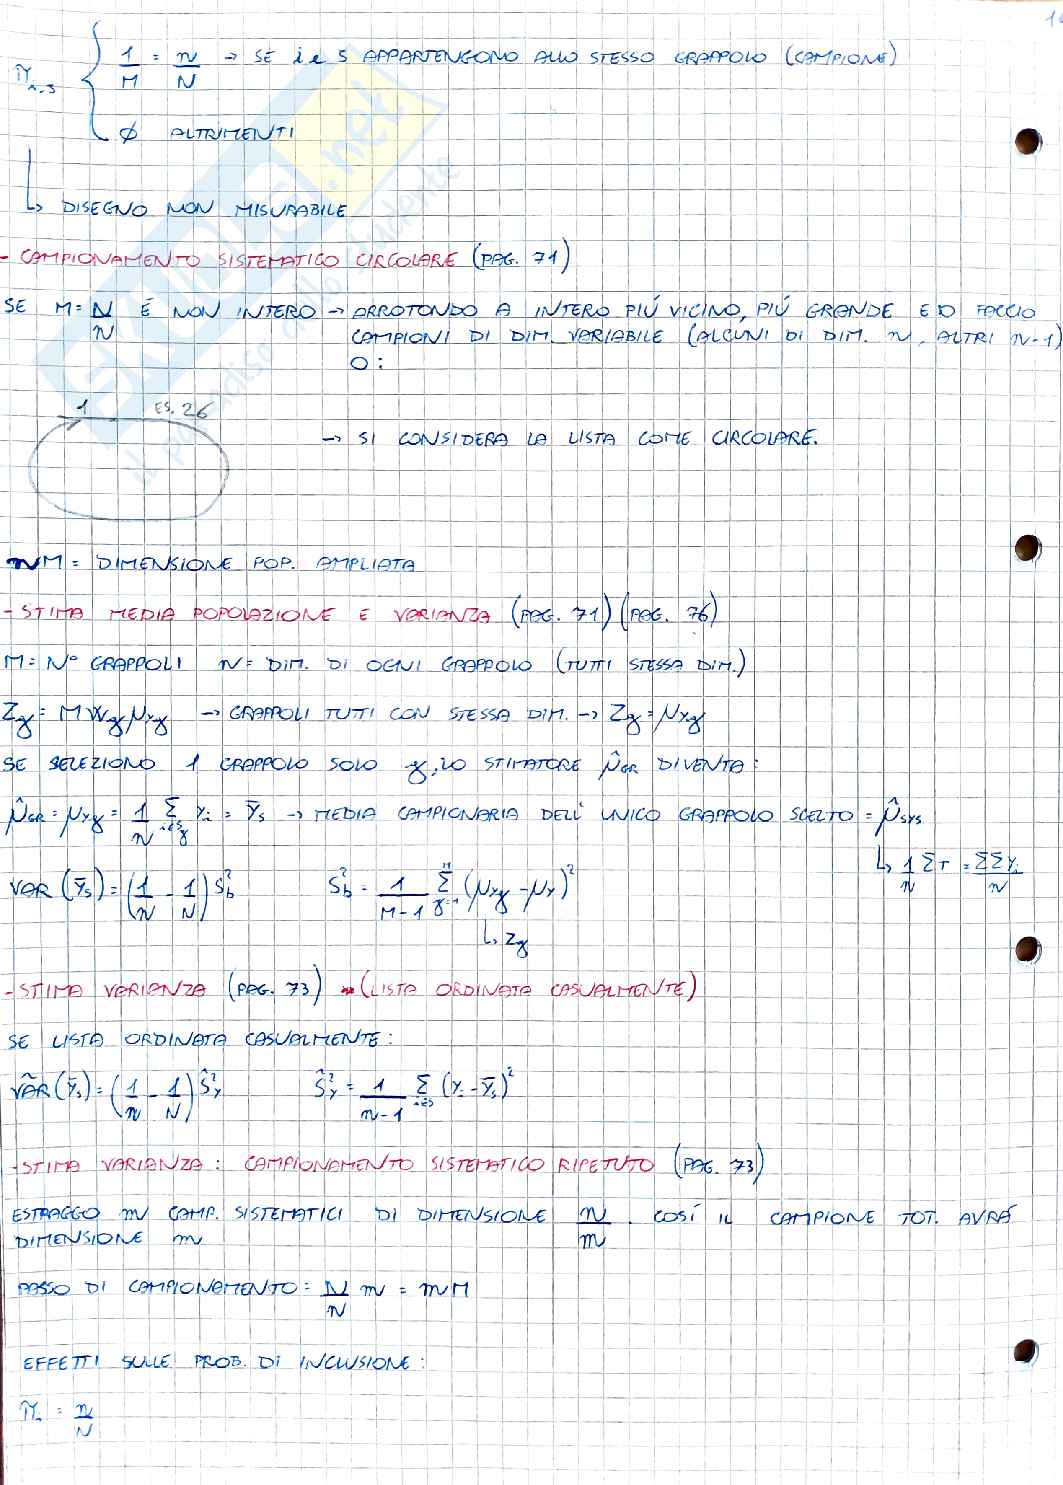 1/M = n/N → SE i e s APPARTENGONO ALLO STESSO GRAPPOLO (CAMPIONE)
π i,s {
∅ ALTRIMENTI
↳ DISEGNO NON MISURABILE
- CAMPIONAMENTO SISTEMATICO CIRCOLARE (PAG. 71)
SE M = N/n É NON INTERO → ARROTONDO A INTERO PIÚ VICINO, PIÚ GRANDE E IO FACCIO
CAMPIONI DI DIM. VARIABILE (ALCUNI DI DIM. n, ALTRI n-1)
O:
1 ES. 26
→ SI CONSIDERA LA LISTA COME CIRCOLARE.
nM = DIMENSIONE POP. AMPLIATA
- STIMA MEDIA POPOLAZIONE E VARIANZA (PAG. 71) (PAG. 76)
M = N° GRAPPOLI N = DIM. DI OGNI GRAPPOLO (TUTTI STESSA DIM.)
Zg = M Wg μyg → GRAPPOLI TUTTI CON STESSA DIM. → Zg = μyg
SE SELEZIONO 1 GRAPPOLO SOLO g, LO STIMATORE μ̂GR DIVENTA:
μ̂GR = μyg = 1/n Σ i∈g yi = ȳs → MEDIA CAMPIONARIA DELL' UNICO GRAPPOLO SCELTO = μ̂SYS
↳ 1/n Σ T = ΣΣ yi / n
VAR (ȳs) = (1/n - 1/N) S²b S²b = 1/(M-1) Σ g=1 M (μyg - μy)²
↳ Zg
- STIMA VARIANZA (PAG. 73) (LISTA ORDINATA CASUALMENTE)
SE LISTA ORDINATA CASUALMENTE:
VÂR (ȳs) = (1/n - 1/N) Ŝ²y Ŝ²y = 1/(n-1) Σ i∈s (yi - ȳs)²
- STIMA VARIANZA: CAMPIONAMENTO SISTEMATICO RIPETUTO (PAG. 73)
ESTRAGGO m CAMP. SISTEMATICI DI DIMENSIONE n/m. COSÍ IL CAMPIONE TOT. AVRÁ
DIMENSIONE n
PASSO DI CAMPIONAMENTO: N/n m = mM
EFFETTI SULLE PROB. DI INCLUSIONE:
πi = n/N
SKUOLA.net
il paradiso dello studente